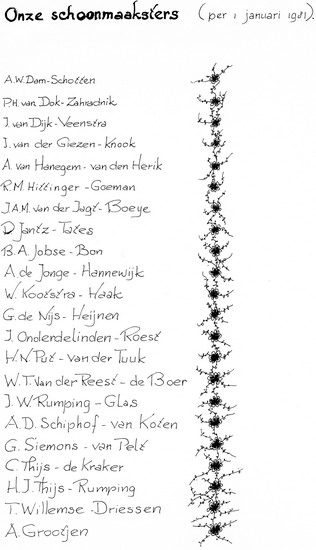 Onze schoonmaaksters (per 1 januari 1981).
A.W. Dam-Schotten
P.H. van Dok-Zahradnik
J. van Dijk-Veenstra
J. van der Giezen-Knook
A. van Hanegem - van den Herik
R.M. Hittinger - Goeman
J.A.M. van der Jagt - Boeye
D Jantz - Tates
B.A. Jobse - Bon
A. de Jonge - Hannewijk
W. Kootstra - Haak
G. de Nijs - Heijnen
J. Onderdelinden - Roest
H.N. Put - van der Tuuk
W.T. Van der Reest - de Boer
J.W. Rumping - Glas
A.D. Schiphof - van Koten
G. Siemons - van Pelt
C. Thijs - de Kraker
H.J. Thijs - Rumping
T. Willemse - Driessen
A. Grootjen